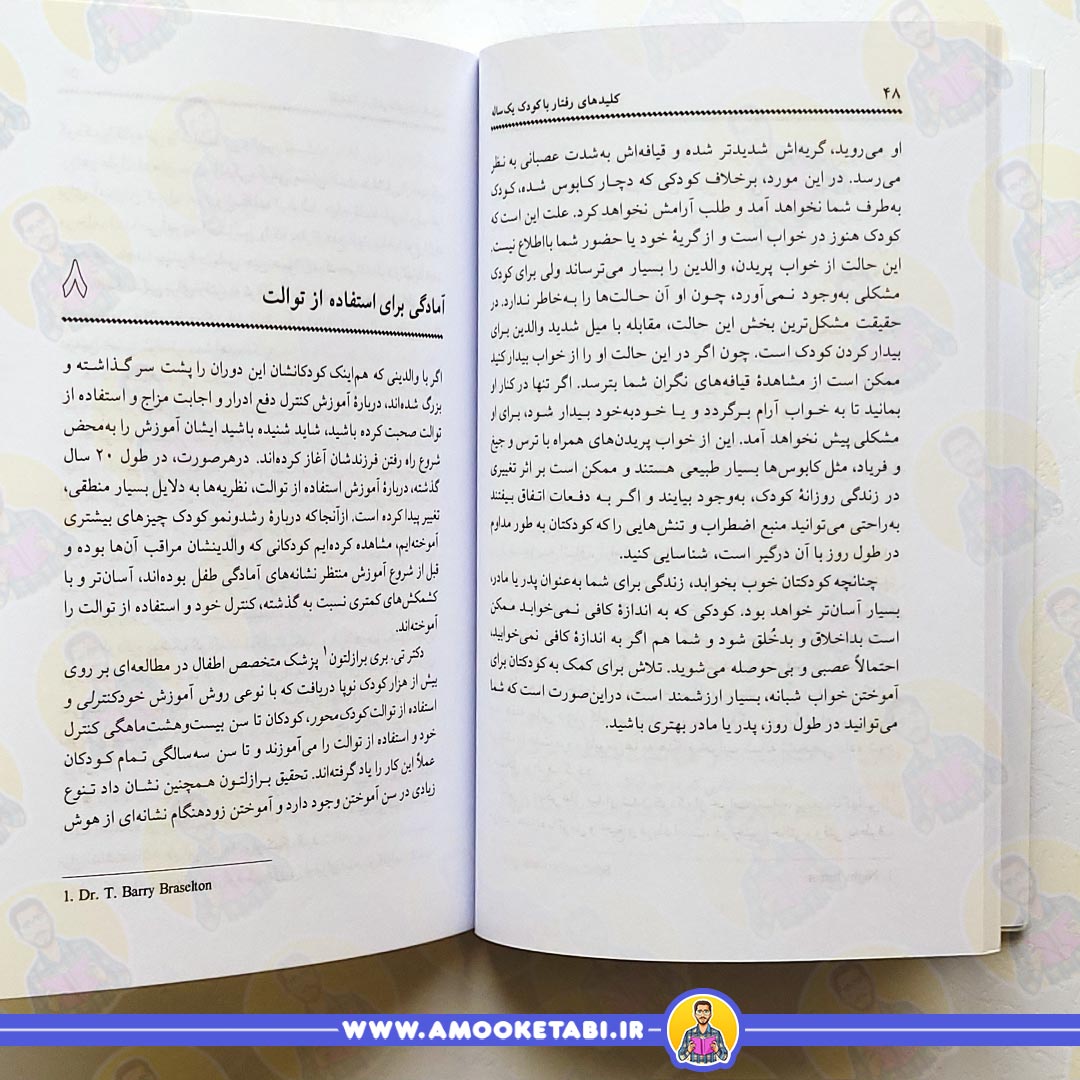 ۴۸
کلیدهای رفتار با کودک یک‌ساله
او می‌روید، گریه‌اش شدیدتر شده و قیافه‌اش به‌شدت عصبانی به نظر
می‌رسد. در این مورد، برخلاف کودکی که دچار کابوس شده، کودک
به‌طرف شما نخواهد آمد و طلب آرامش نخواهد کرد. علت این است که
کودک هنوز در خواب است و از گریۀ خود یا حضور شما بااطلاع نیست.
این حالت از خواب پریدن، والدین را بسیار می‌ترساند ولی برای کودک
مشکلی به‌وجود نمی‌آورد، چون او آن حالت‌ها را به‌خاطر ندارد. در
حقیقت مشکل‌ترین بخش این حالت، مقابله با میل شدید والدین برای
بیدار کردن کودک است. چون اگر در این حالت او را از خواب بیدار کنید
ممکن است از مشاهدۀ قیافه‌های نگران شما بترسد. اگر تنها در کنار او
بمانید تا به خواب آرام برگردد و یا خودبه‌خود بیدار شود، برای او
مشکلی پیش نخواهد آمد. این از خواب پریدن‌های همراه با ترس و جیغ
و فریاد، مثل کابوس‌ها بسیار طبیعی هستند و ممکن است بر اثر تغییری
در زندگی روزانۀ کودک، به‌وجود بیایند و اگر به دفعات اتفاق بیفتند
به‌راحتی می‌توانید منبع اضطراب و تنش‌هایی را که کودکتان به طور مداوم
در طول روز با آن درگیر است، شناسایی کنید.
چنانچه کودکتان خوب بخوابد، زندگی برای شما به‌عنوان پدر یا مادر،
بسیار آسان‌تر خواهد بود. کودکی که به اندازۀ کافی نمی‌خوابد ممکن
است بداخلاق و بدخُلق شود و شما هم اگر به اندازۀ کافی نمی‌خوابید،
احتمالاً عصبی و بی‌حوصله می‌شوید. تلاش برای کمک به کودکتان برای
آموختن خواب شبانه، بسیار ارزشمند است، دراین‌صورت است که شما
می‌توانید در طول روز، پدر یا مادر بهتری باشید.
۸
آمادگی برای استفاده از توالت
اگر با والدینی که هم‌اینک کودکانشان این دوران را پشت سر گذاشته و
بزرگ شده‌اند، دربارۀ آموزش کنترل دفع ادرار و اجابت مزاج و استفاده از
توالت صحبت کرده باشید، شاید شنیده باشید ایشان آموزش را به‌محض
شروع راه رفتن فرزندشان آغاز کرده‌اند. درهرصورت، در طول ۲۰ سال
گذشته، دربارۀ آموزش استفاده از توالت، نظریه‌ها به دلایل بسیار منطقی،
تغییر پیدا کرده است. ازآنجاکه دربارۀ رشدونمو کودک چیزهای بیشتری
آموخته‌ایم، مشاهده کرده‌ایم کودکانی که والدینشان مراقب آن‌ها بوده و
قبل از شروع آموزش منتظر نشانه‌های آمادگی طفل بوده‌اند، آسان‌تر و با
کشمکش‌های کمتری نسبت به گذشته، کنترل خود و استفاده از توالت را
آموخته‌اند.
دکتر تی. بری برازلتون۱ پزشک متخصص اطفال در مطالعه‌ای بر روی
بیش از هزار کودک نوپا دریافت که با نوعی روش آموزش خودکنترلی و
استفاده از توالت کودک‌محور، کودکان تا سن بیست‌وهشت‌ماهگی کنترل
خود و استفاده از توالت را می‌آموزند و تا سن سه‌سالگی تمام کودکان
عملاً این کار را یاد گرفته‌اند. تحقیق برازلتون همچنین نشان داد تنوع
زیادی در سن آموختن وجود دارد و آموختن زودهنگام نشانه‌ای از هوش
1. Dr. T. Barry Braselton
WWW.AMOOKETABI.IR